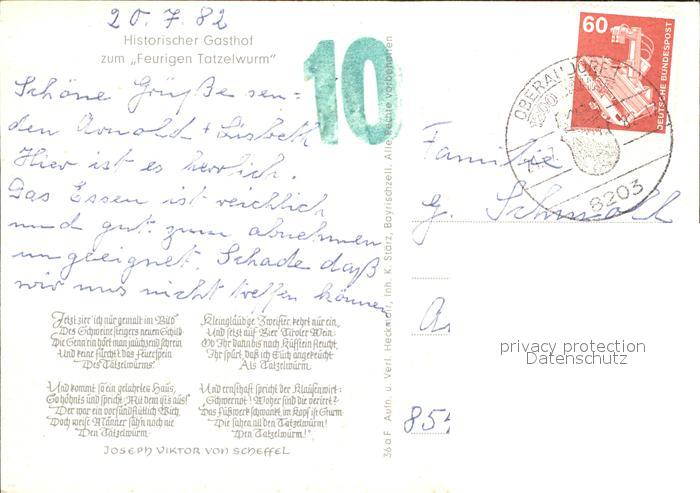 20.7.82
Historischer Gasthof
zum „Feurigen Tatzelwurm"
Schöne Grüße sen=
den Arnold + Lisbeth
Hier ist es herrlich.
Das Essen ist reichlich
und gut. zum abnehmen
ungeeignet. Schade daß
wir uns nicht treffen können
10
60
DEUTSCHE BUNDESPOST
8203
Familie
G.
85
privacy protection
Datenschutz
36 a F Aufn. u. Verl. Heckmair, Inh. K. Starz, Bayrischzell. Alle Rechte vorbehalten
Jetzt zier' ich nur gemalt im Bild
Des Schweinesteigers neuen Schild
Die Senn'rin hört man jauchzend schrein
Und keine fürcht't das Feuerspein
Des Tatzelwurms.
Und kommt so ein gelahrtes Haus,
So höhnts und spricht: Mit dem ists aus!
Der war ein vorsündflutlich Vieh,
Doch weise Männer sah'n noch nie
Den Tatzelwurm.
Kleingläub'ge Zweifler, kehrt nur ein,
Und setzt auf Bier Tiroler Wein:
Ob Ihr dahin bis nach Kufstein fleucht,
Ihr spürt, daß ich Euch angekeucht
Als Tatzelwurm
Und ernsthaft spricht der Klausenwirt:
Schwernot! Woher sind die verirrt?
Das Fußwerk schwankt, im Kopf ist Sturm
Die sahen all den Tatzelwurm!
Den Tatzelwurm!"
JOSEPH VIKTOR VON SCHEFFEL